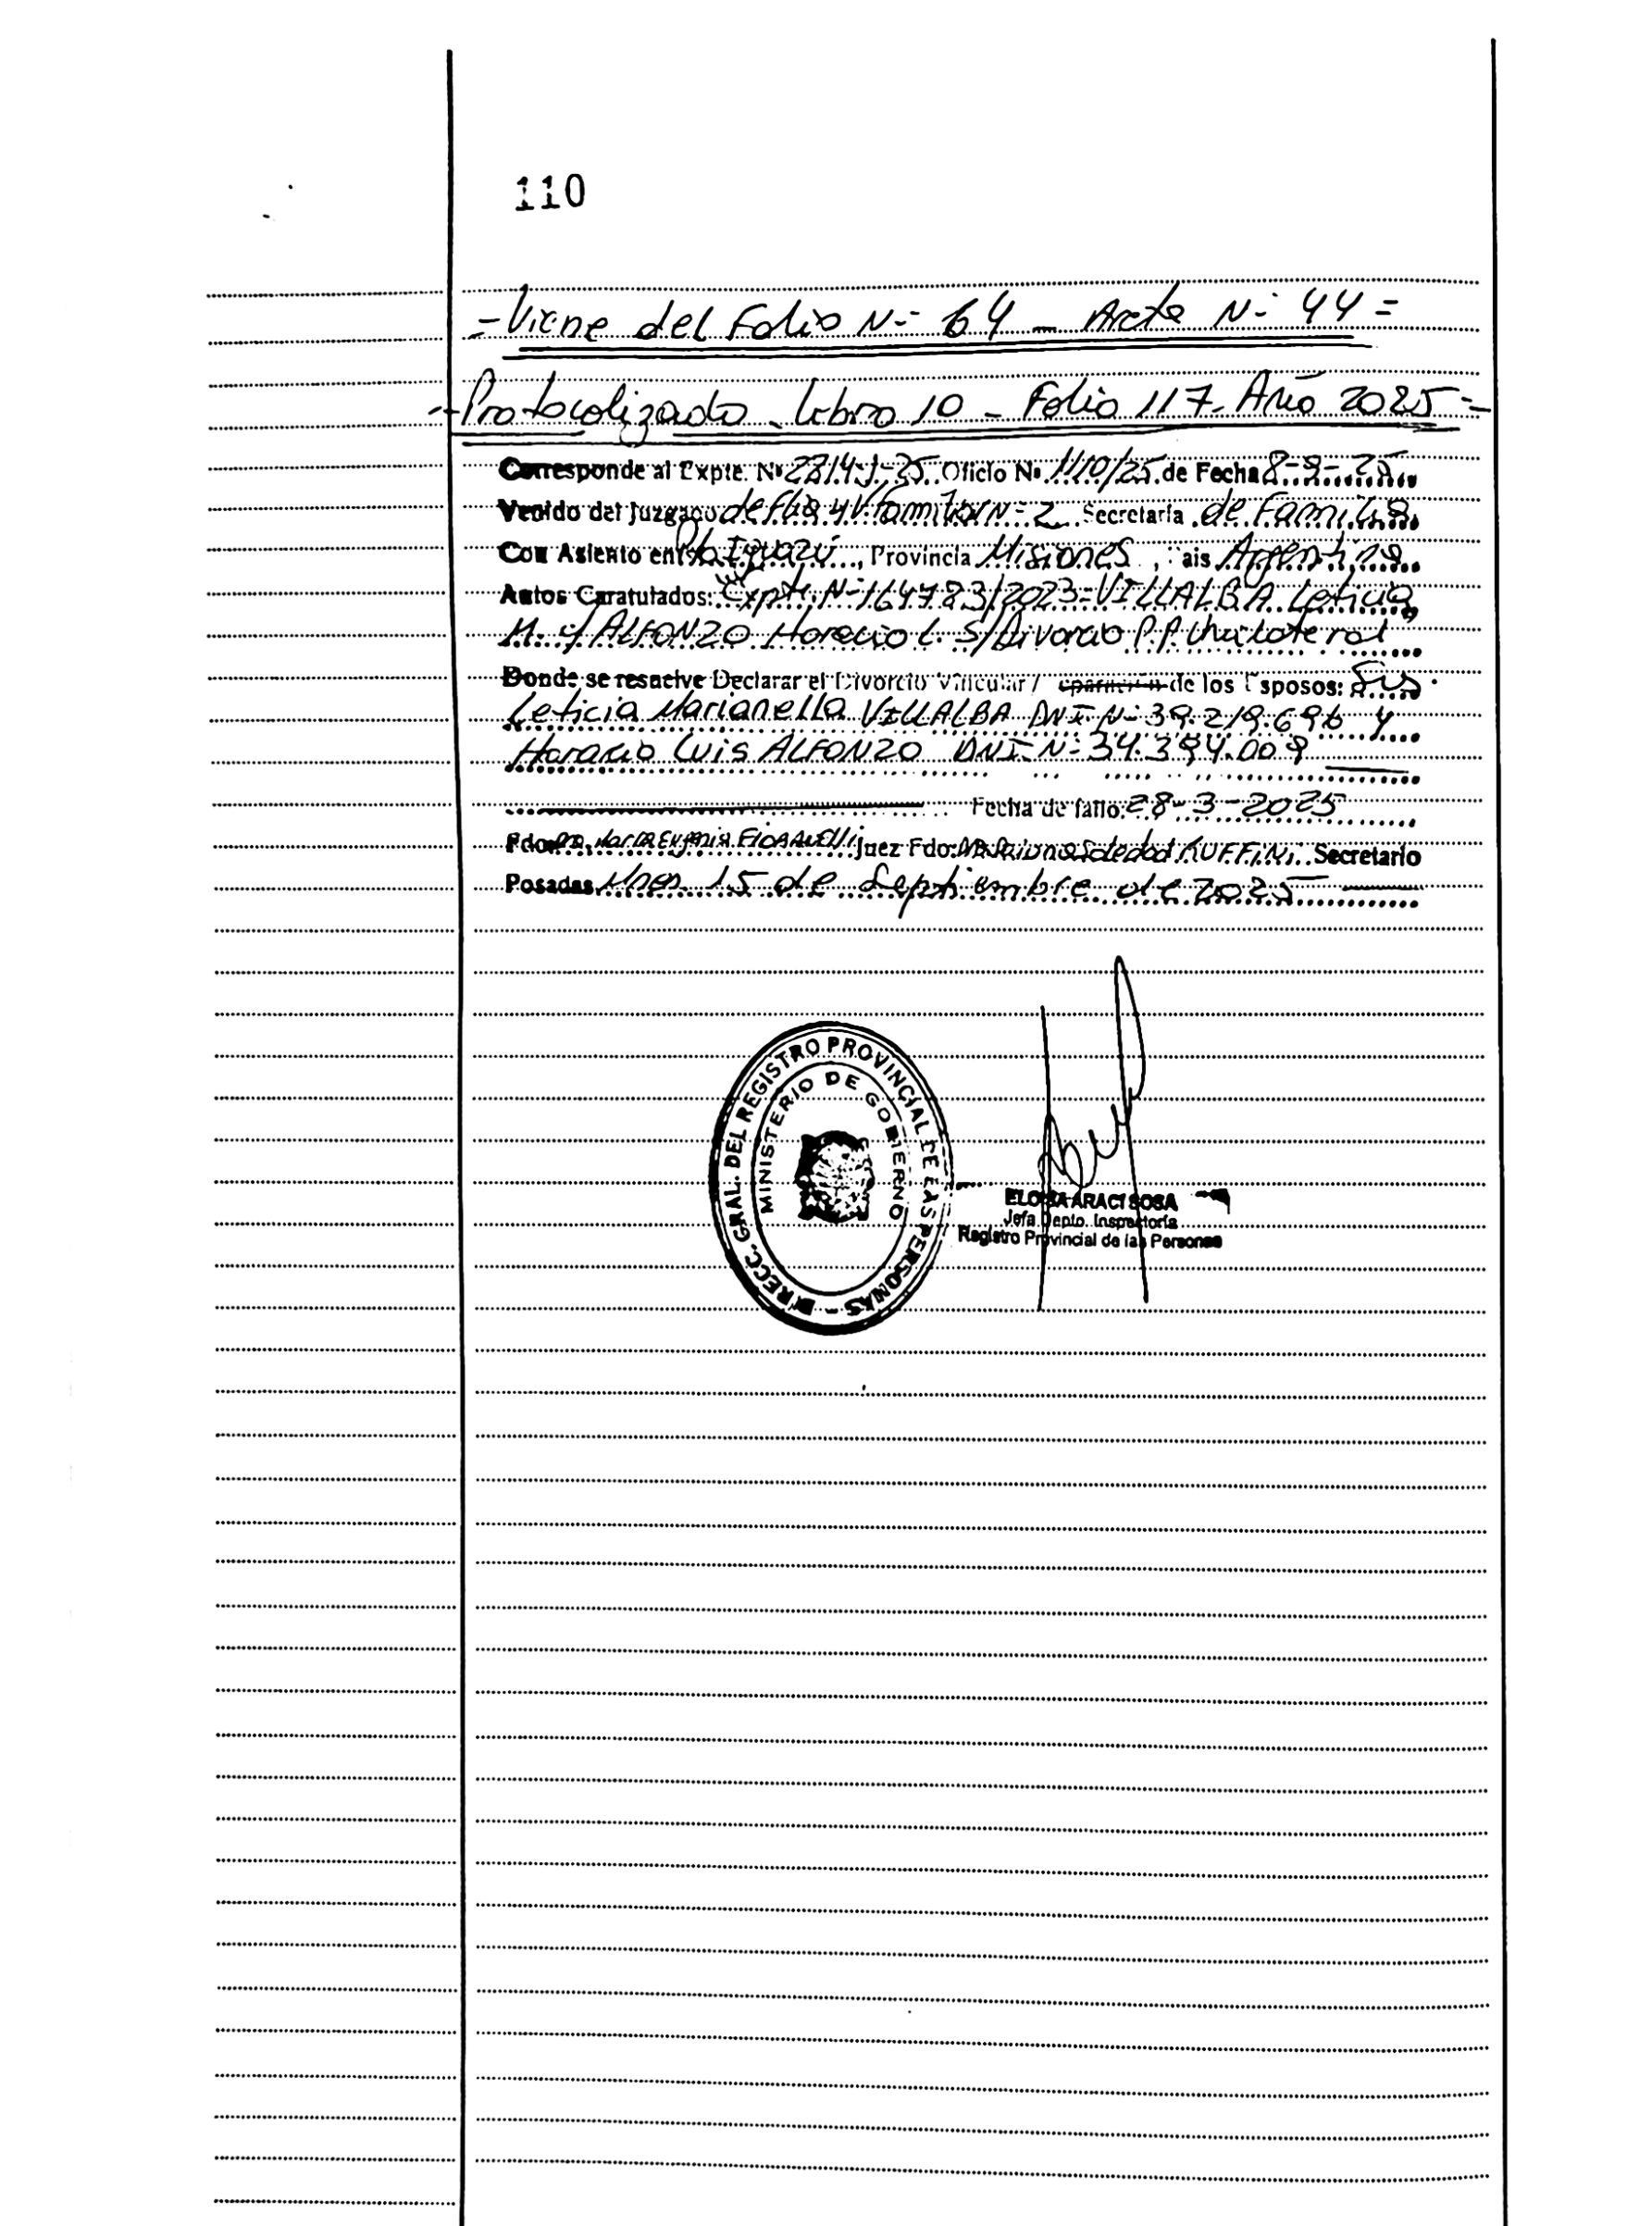 110
=Viene del Folio N:- 64 - Acta N:- 44=
Protocolizado - Libro 10 - Folio 117 - Año 2025=
Corresponde al Expte. Nº 2814-J-25 Oficio Nº 1110/25 de Fecha 8-9-25
Venido del Juzgado de Flia y V. Familiar N:- 2 Secretaría de Familia
Con Asiento en Pto Iguazú, Provincia Misiones, Pais Argentina
Autos Caratulados: Expte. N:- 164783/2023 - VILLALBA Leticia
M. y/ ALFONZO Horacio L. S/ Divorcio P.P. Unilateral"
Donde se resuelve Declarar el Divorcio Vincular / de los Esposos:
Leticia Marianella VILLALBA DNI N:- 39.219.696 y
Horacio Luis ALFONZO DNI N:- 34.394.009
Fecha de fallo: 28-3-2025
Fdo: Juez Fdo: Soledad RUFFINI Secretario
Posadas, Mnes. 15 de Septiembre de 2025
DIRECC. GRAL. DEL REGISTRO PROVINCIAL DE LAS PERSONAS -
MINISTERIO DE GOBIERNO
ELOISA ARACI SOSA
Jefa Depto. Inspectoría
Registro Provincial de las Personas